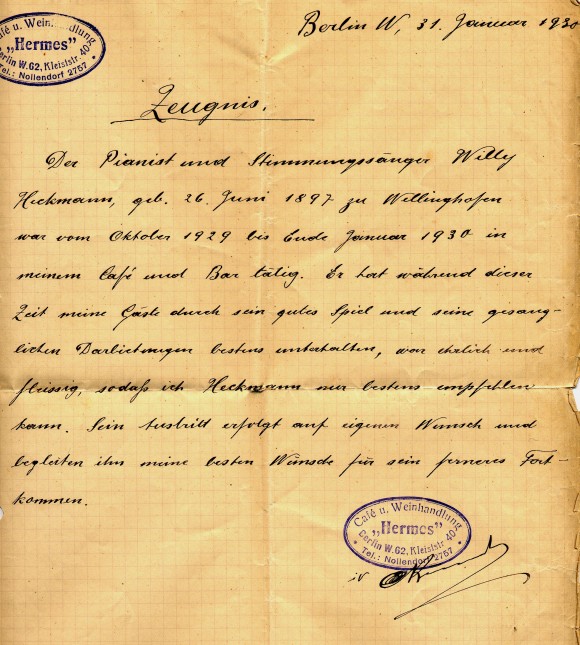 Café u. Weinhandlung
„Hermes”
Berlin W.62, Kleiststr. 40
Tel.: Nollendorf 2757
Berlin W, 31. Januar 1930
Zeugnis.
Der Pianist und Stimmungssänger Willy
Heckmann, geb. 26. Juni 1897 zu Wellinghofen
war vom Oktober 1929 bis Ende Januar 1930 in
meinem Café und Bar tätig. Er hat während dieser
Zeit meine Gäste durch sein gutes Spiel und seine gesang-
lichen Darbietungen bestens unterhalten, war ehrlich und
fleissig, sodaß ich Heckmann nur bestens empfehlen
kann. Sein Austritt erfolgt auf eigenen Wunsch und
begleiten ihn meine besten Wünsche für sein ferneres Fort-
kommen.
Café u. Weinhandlung
„Hermes”
Berlin W.62, Kleiststr. 40
Tel.: Nollendorf 2757